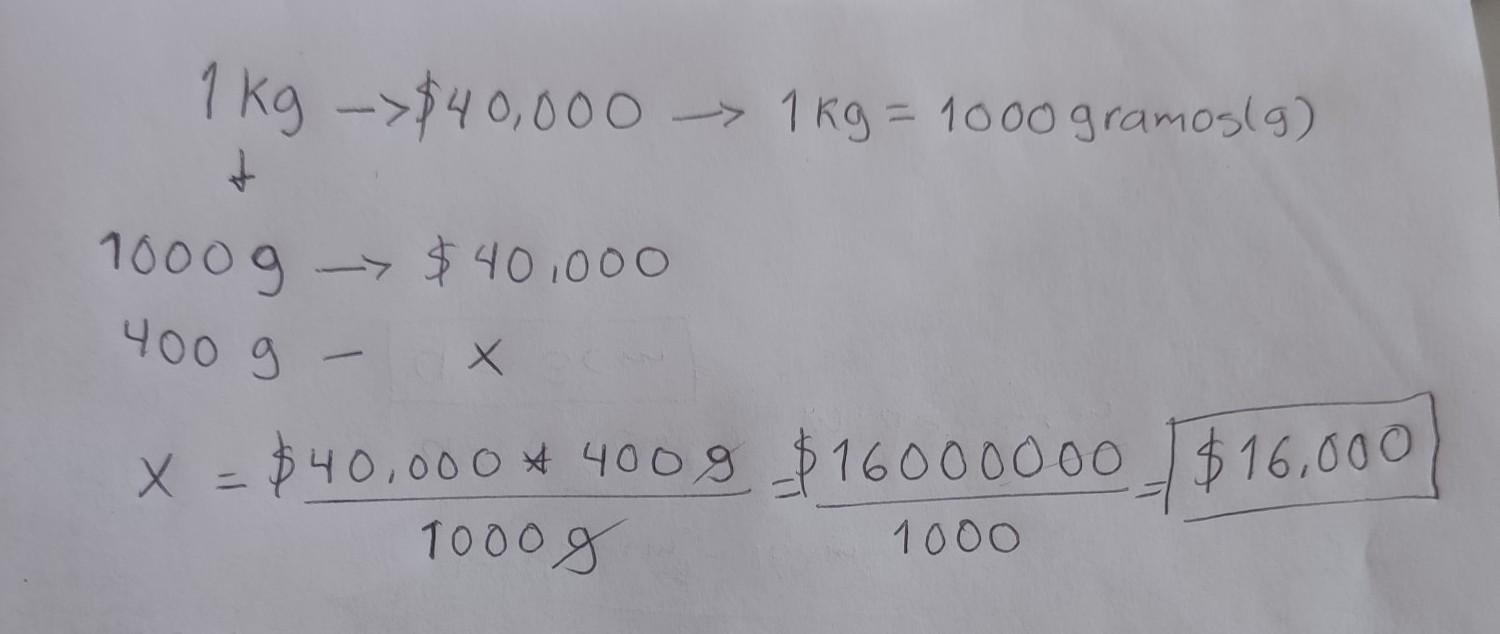 1 Kg → $40,000 → 1 Kg = 1000 gramos(g)
↓
1000 g → $40,000
400 g - x
x = $40,000 * 400 g / 1000 g = $16000000 / 1000 = $16,000